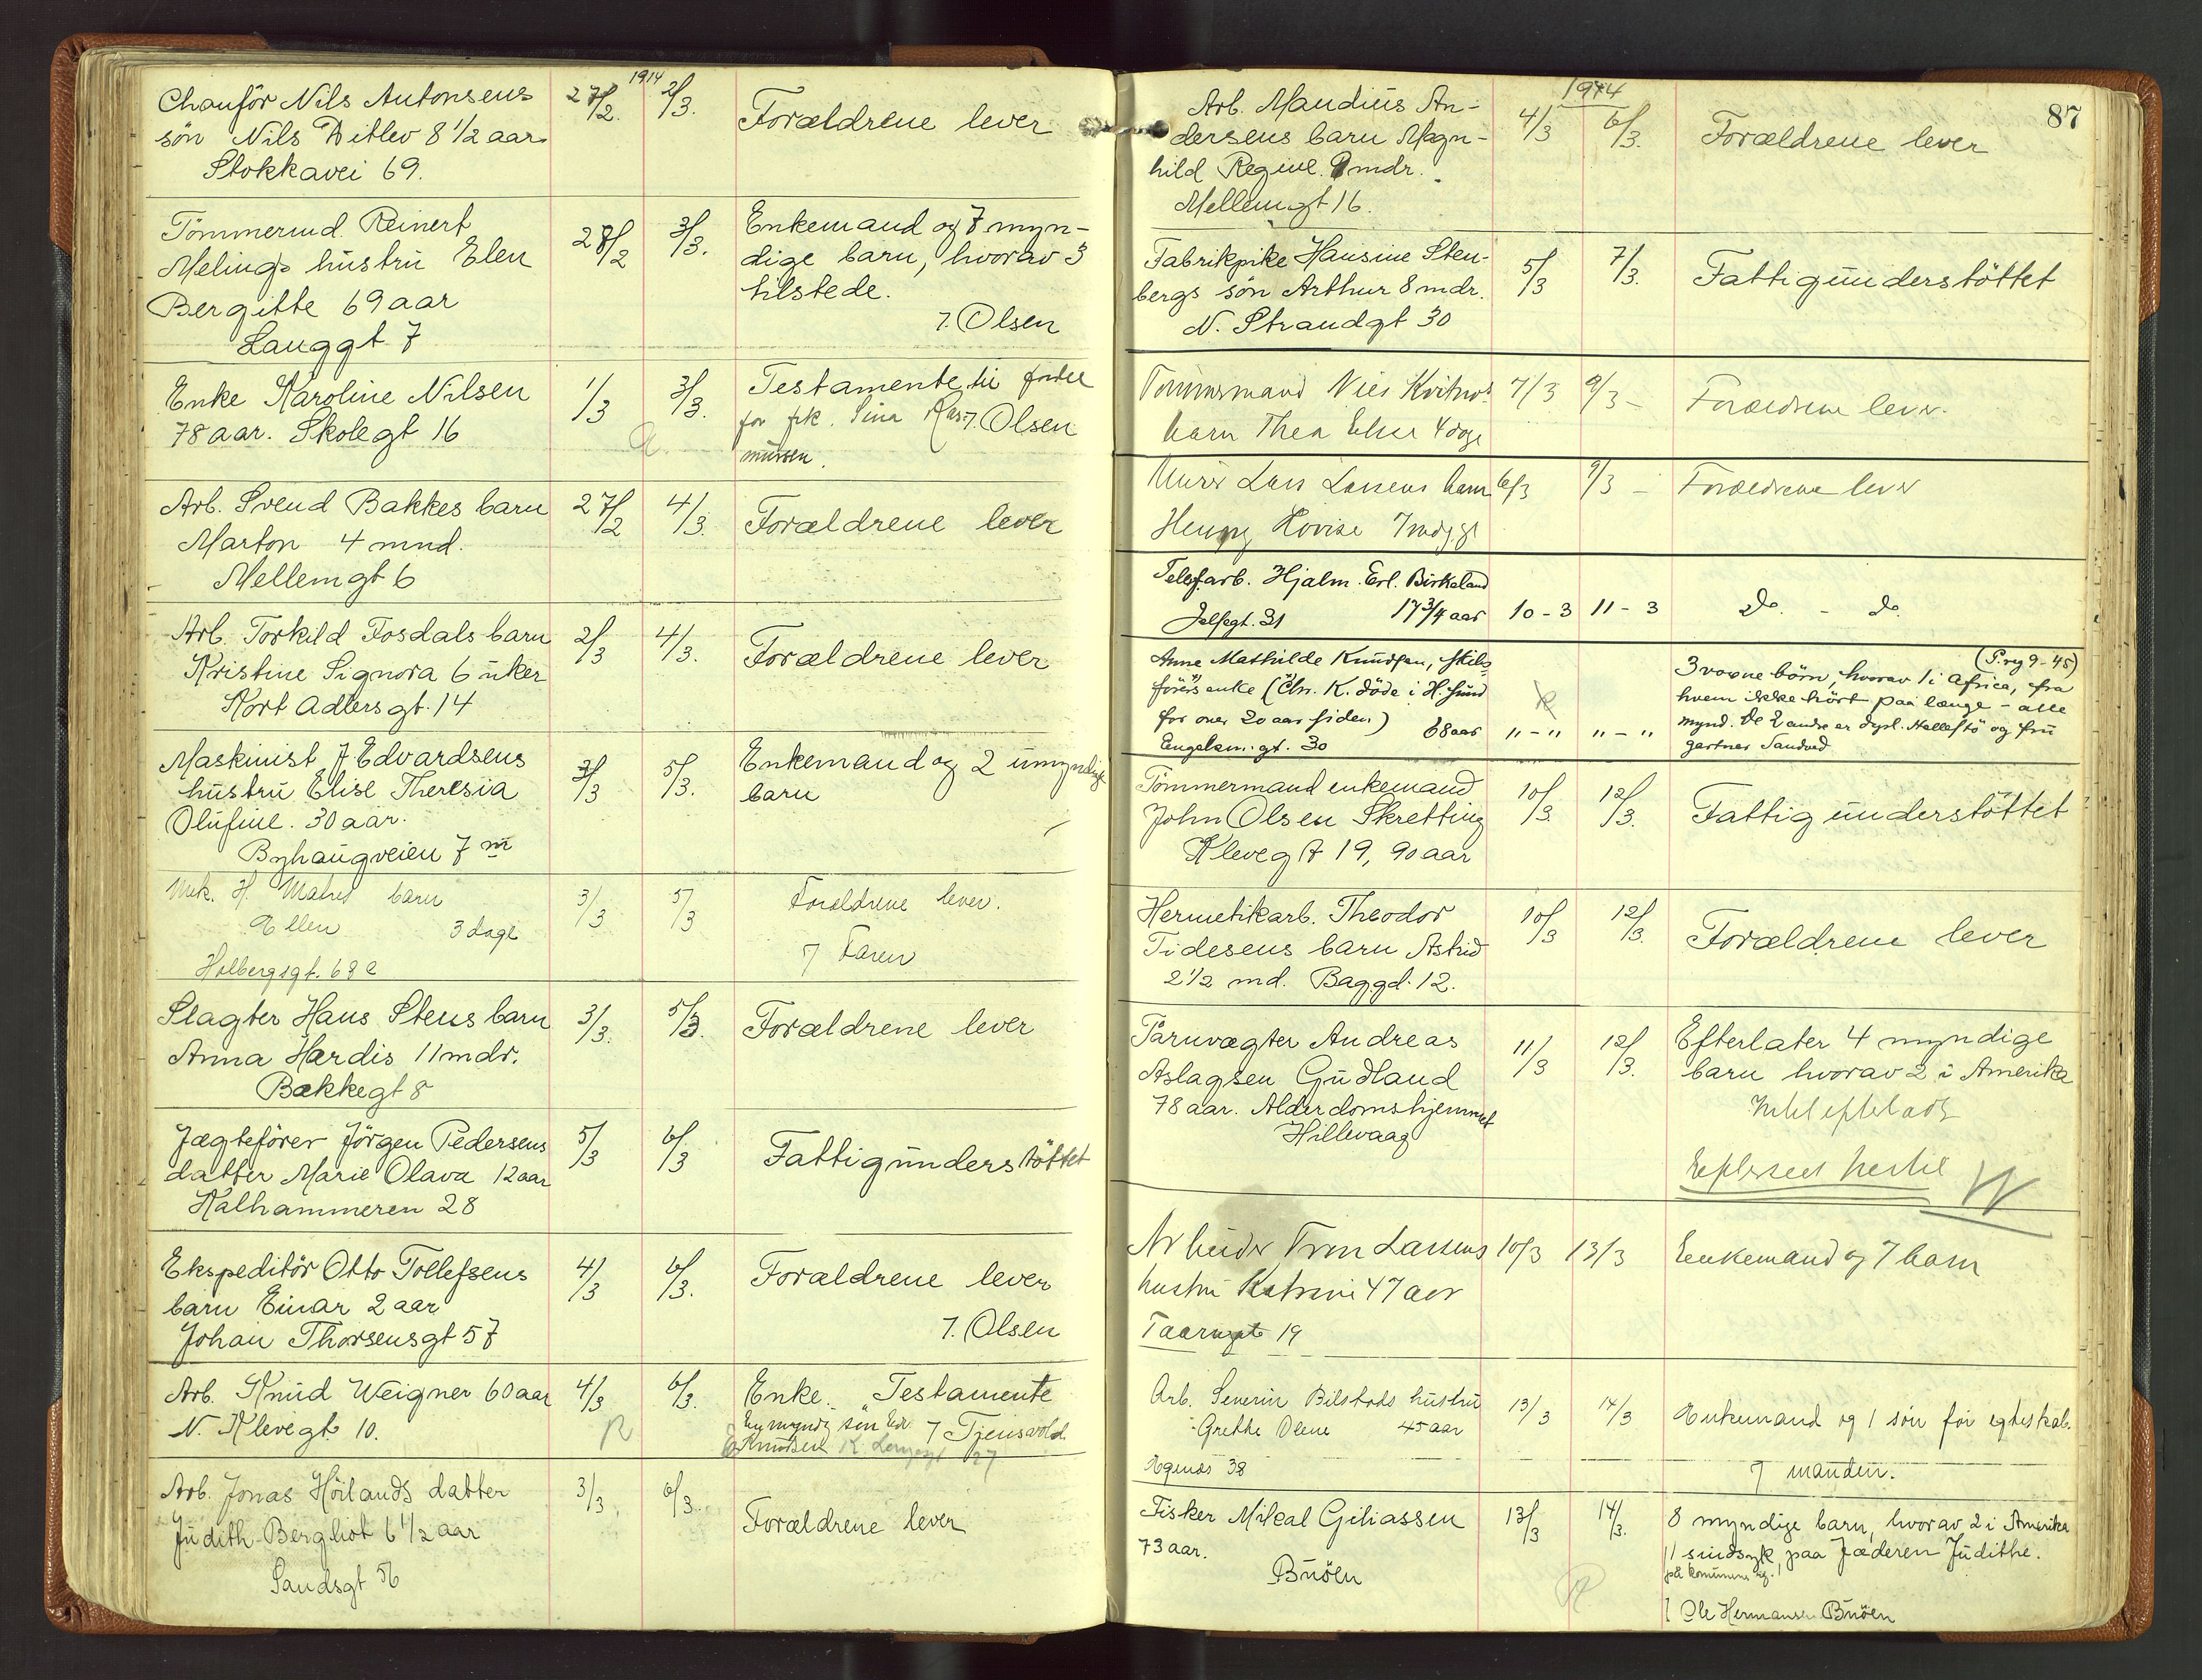 1914
Chaufför Nils Antonsens 27/2. 2/3. Forældrene lever
sön Nils Ditlev 8 1/2 aar
Stokkavei 69.
Tömmermd. Reinert 28/2 3/3. Enkemand og 7 myn-
Melings hustru Elen dige barn, hvorav 3
Bergitte 69 aar tilstede.
Langgt 7 7. Olsen
Enke Karoline Nilsen 1/3 3/3. Testamente til fordel
78 aar. Skolegt 16 for frk. Sina Ras- 7. Olsen
mussen.
Arb. Svend Bakkes barn 27/2 4/3. Forældrene lever
Marton 4 mnd.
Mellemgt 6
Arb. Torkild Fosdals barn 2/3 4/3. Forældrene lever
Kristine Signora 6 uker
Kort Adlersgt. 14
Maskinist J Edvardsens 3/3 5/3. Enkemand og 2 umyndige
hustru Elise Theresia barn
Olufine. 30 aar.
Byhaugveien 7 m
Mek. H. barn 3/3 5/3 Forældrene lever.
Ellen 3 dage
Holbergsgt. 68 7 Faren
Slagter Hans Stens barn 3/3. 5/3. Forældrene lever
Anna Hardis 11 mdr.
Bakkegt 8
Jægtefører Jörgen Pedersens 5/3 6/3 Fattigunderstöttet
datter Marie Olava 12 aar
Kalhammeren 28
Ekspeditör Otto Tollefsens 4/3 6/3. Forældrene lever
barn Einar 2 aar
Johan Thorsensgt 57 7. Olsen
Arb. Knud Weigner 60 aar 4/3 6/3. Enke. Testamente
N. Klevegt 10. R En myndig sön Edv. 7 Tjensvold
Knudsen K.
Arb. Jonas Höilands datter 3/3. 6/3. Forældrene lever
Judith Berghot 6 1/2 aar
Sandsgt 56
87
1914
Arb. Maudius An- 4/3 6/3. Forældrene lever
dersens barn Magn-
hild Regine. 9 mdr.
Mellemgt 16.
Fabrikpike Hansine Sten- 5/3 7/3. Fattigunderstöttet
bergs sön Arthur 8 mdr.
N. Strandgt 30
Tömmermand Nils 7/3 9/3 - Forældrene lever.
barn Thea Else 4 dage
Murer Lars Larsens barn 6/3 9/3 - Forældrene lever
Henny Lovise
Telegf.arb. Hjalm. Erl. Birkeland
Jelsegt. 31 17 3/4 aar 10 - 3 11 - 3 Do. - do.
Anne Mathilde Knudsen, skibs- (P.rg 9-45)
förers enke (Chr. K. döde i H.sund 3 voxne börn, hvorav 1 i Africa, fra
for over 20 aar siden) 68 aar " - " " - " hvem ikke hört paa længe - alle
Engelsm.gt. 30 mynd. De 2 andre er dypl. Hellestö og fru
gartner Sandved
Tömmermand enkemand 10/3. 12/3. Fattigunderstöttet
John Olsen Skretting
Klevegt 19, 90 aar
Hermetikarb. Theodor 10/3 12/3. Forældrene lever
Tidesens barn Astrid
2 1/2 md. Baggd. 12.
Tårnvægter Andreas 11/3 12/3. Efterlater 4 myndige
Aslagsen Gudland barn hvorav 2 i Amerika
78 aar. Alderdomshjemmet
Hillevaag
Arbeider Tron Larsens 10/3 13/3 Enkemand og 7 barn
hustru Katrine 47 aar
Taarngt 19
Arb. Severin Bilstads hustru 13/3 14/3 Enkemand og 1 sön för egteskab.
Grethe Olene 45 aar
Egenes 38 7 manden.
Fisker Mikal Giliassen 13/3 14/3. 8 myndige barn, hvorav 2 i Amerika
73 aar. 1 sindsyk, paa Jæderen Judithe.
Buöen på kommunens
Ole Hermansen Buöen